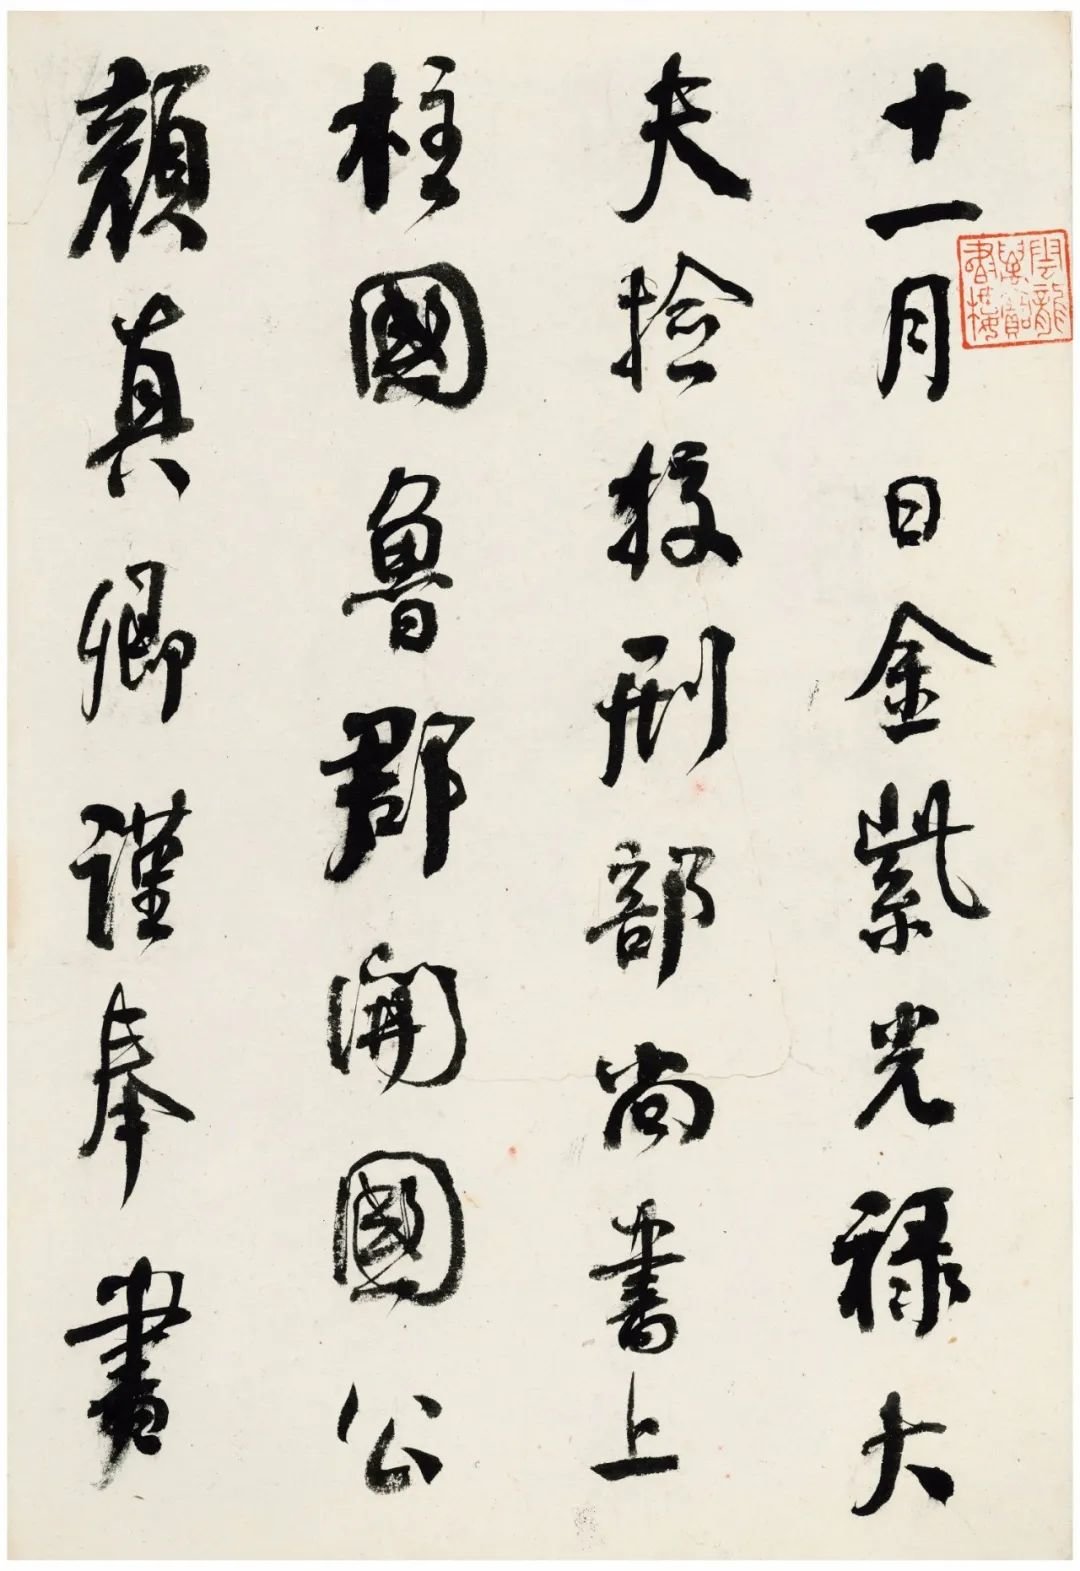 十一月日金紫光禄大
夫捡挍刑部尚書上
柱國魯郡開國公
顏真卿謹奉書